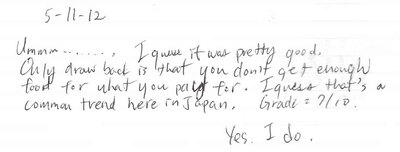 5-11-12
Ummm......, I guess it was pretty good.
Only draw back is that you don't get enough
food for what you pay for. I guess that's a
common trend here in Japan. Grade = 7/10.
Yes. I do.